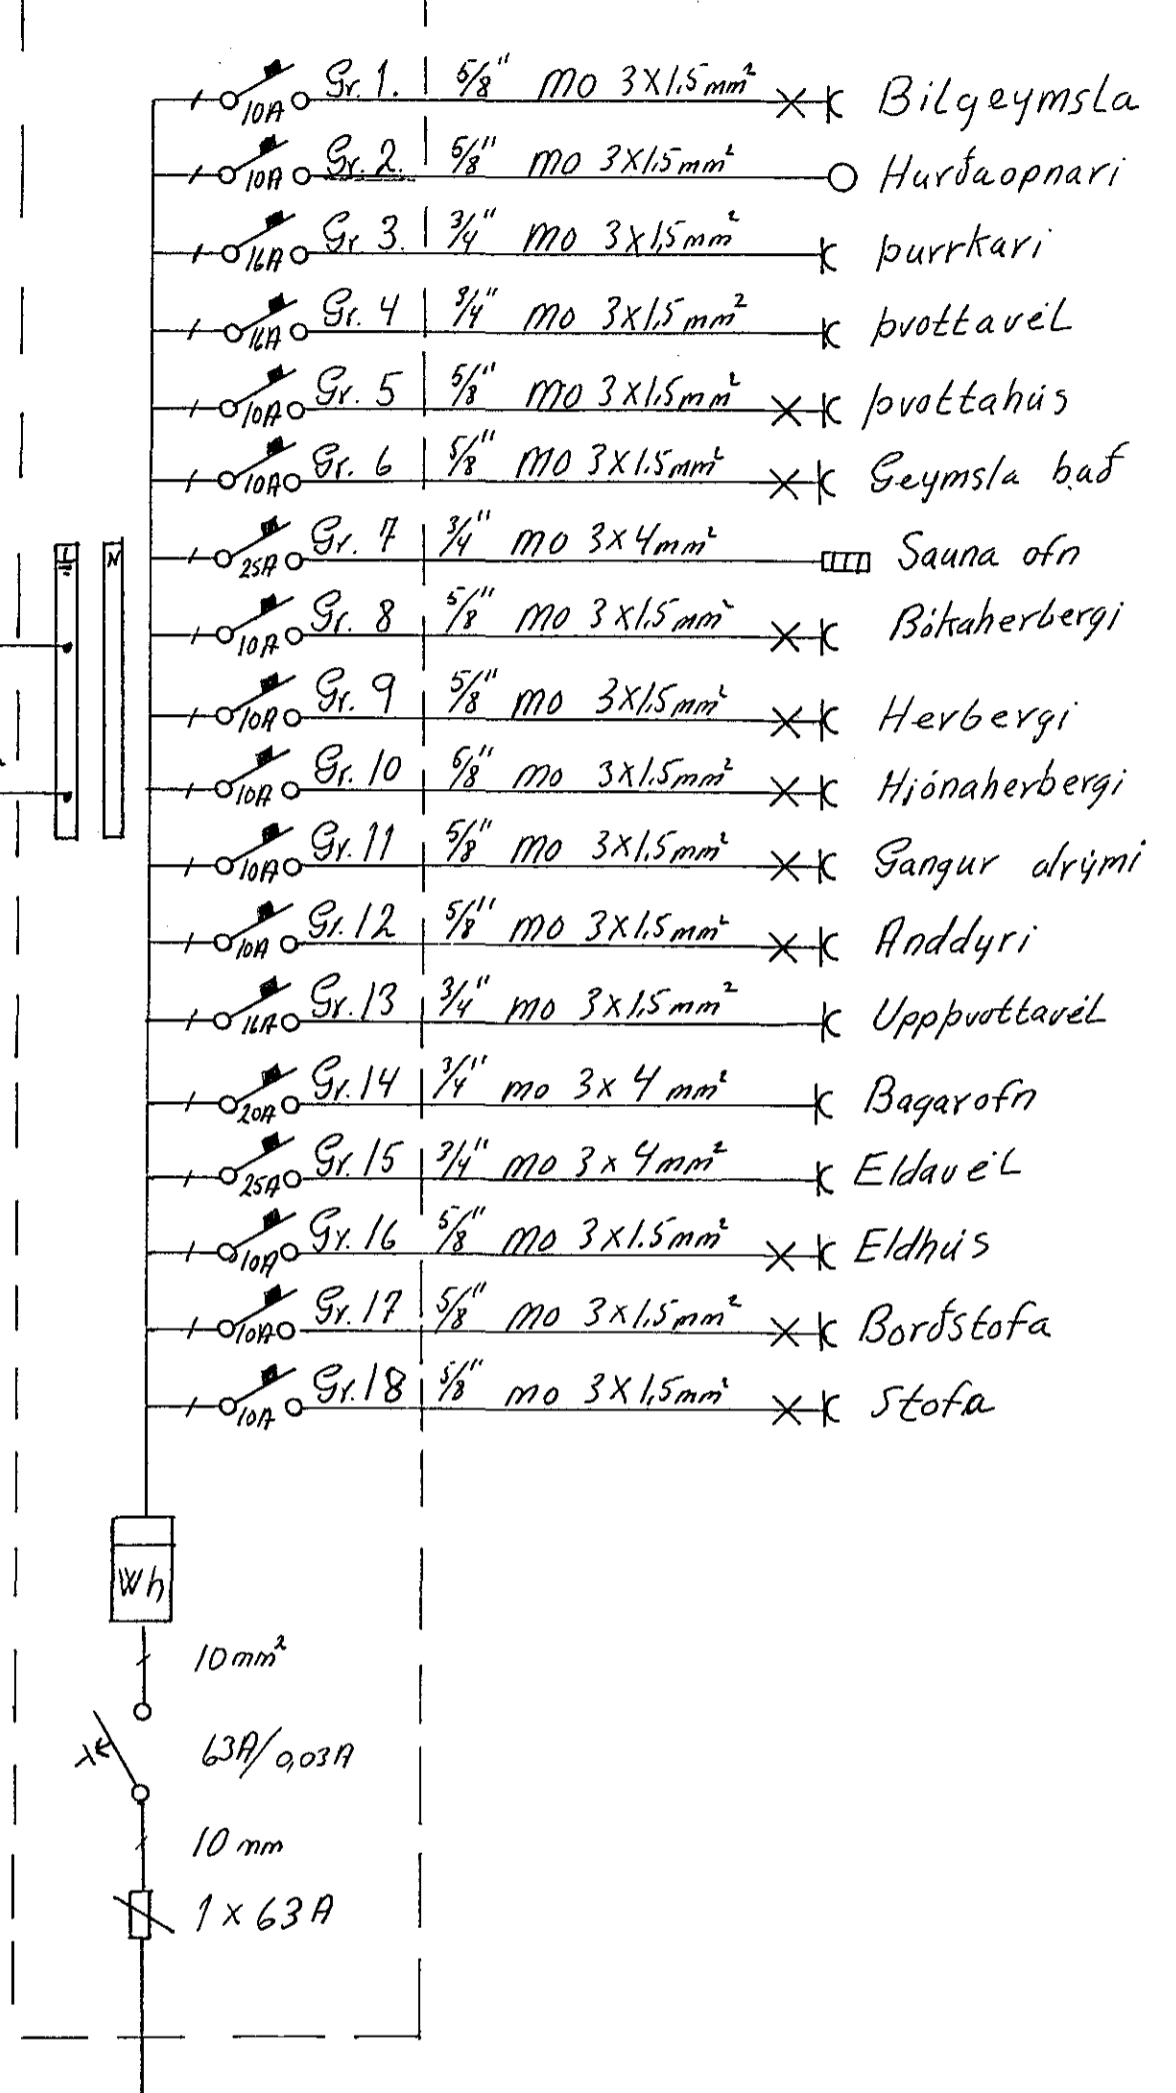 10A Gr. 1. 5/8" mo 3x1.5mm² Bilgeymsla
10A Gr. 2. 5/8" mo 3x1.5mm² Hurðaopnari
16A Gr 3. 3/4" mo 3x1,5mm² þurrkari
16A Gr. 4 3/4" mo 3x1,5mm² þvottavél
10A Gr. 5 5/8" mo 3x1.5mm² þvottahús
10A Gr. 6 5/8" mo 3x1.5mm² Geymsla bað
25A Gr. 7 3/4" mo 3x4mm² Sauna ofn
N
10A Gr. 8 5/8" mo 3x1.5mm² Bókaherbergi
10A Gr. 9 5/8" mo 3x1.5mm² Herbergi
10A Gr. 10 5/8" mo 3x1.5mm² Hjónaherbergi
10A Gr. 11 5/8" mo 3x1,5mm² Gangur alrými
10A Gr. 12 5/8" mo 3x1.5mm² Anddyri
16A Gr. 13 3/4" mo 3x1.5mm² Uppþvottavél
20A Gr. 14 3/4" mo 3x4mm² Bagarofn
25A Gr. 15 3/4" mo 3x4mm² Eldavél
10A Gr. 16 5/8" mo 3x1.5mm² Eldhús
10A Gr. 17 5/8" mo 3x1,5mm² Borðstofa
10A Gr. 18 5/8" mo 3x1,5mm² Stofa
Wh
10mm²
63A/0,03A
10 mm
1 x 63A